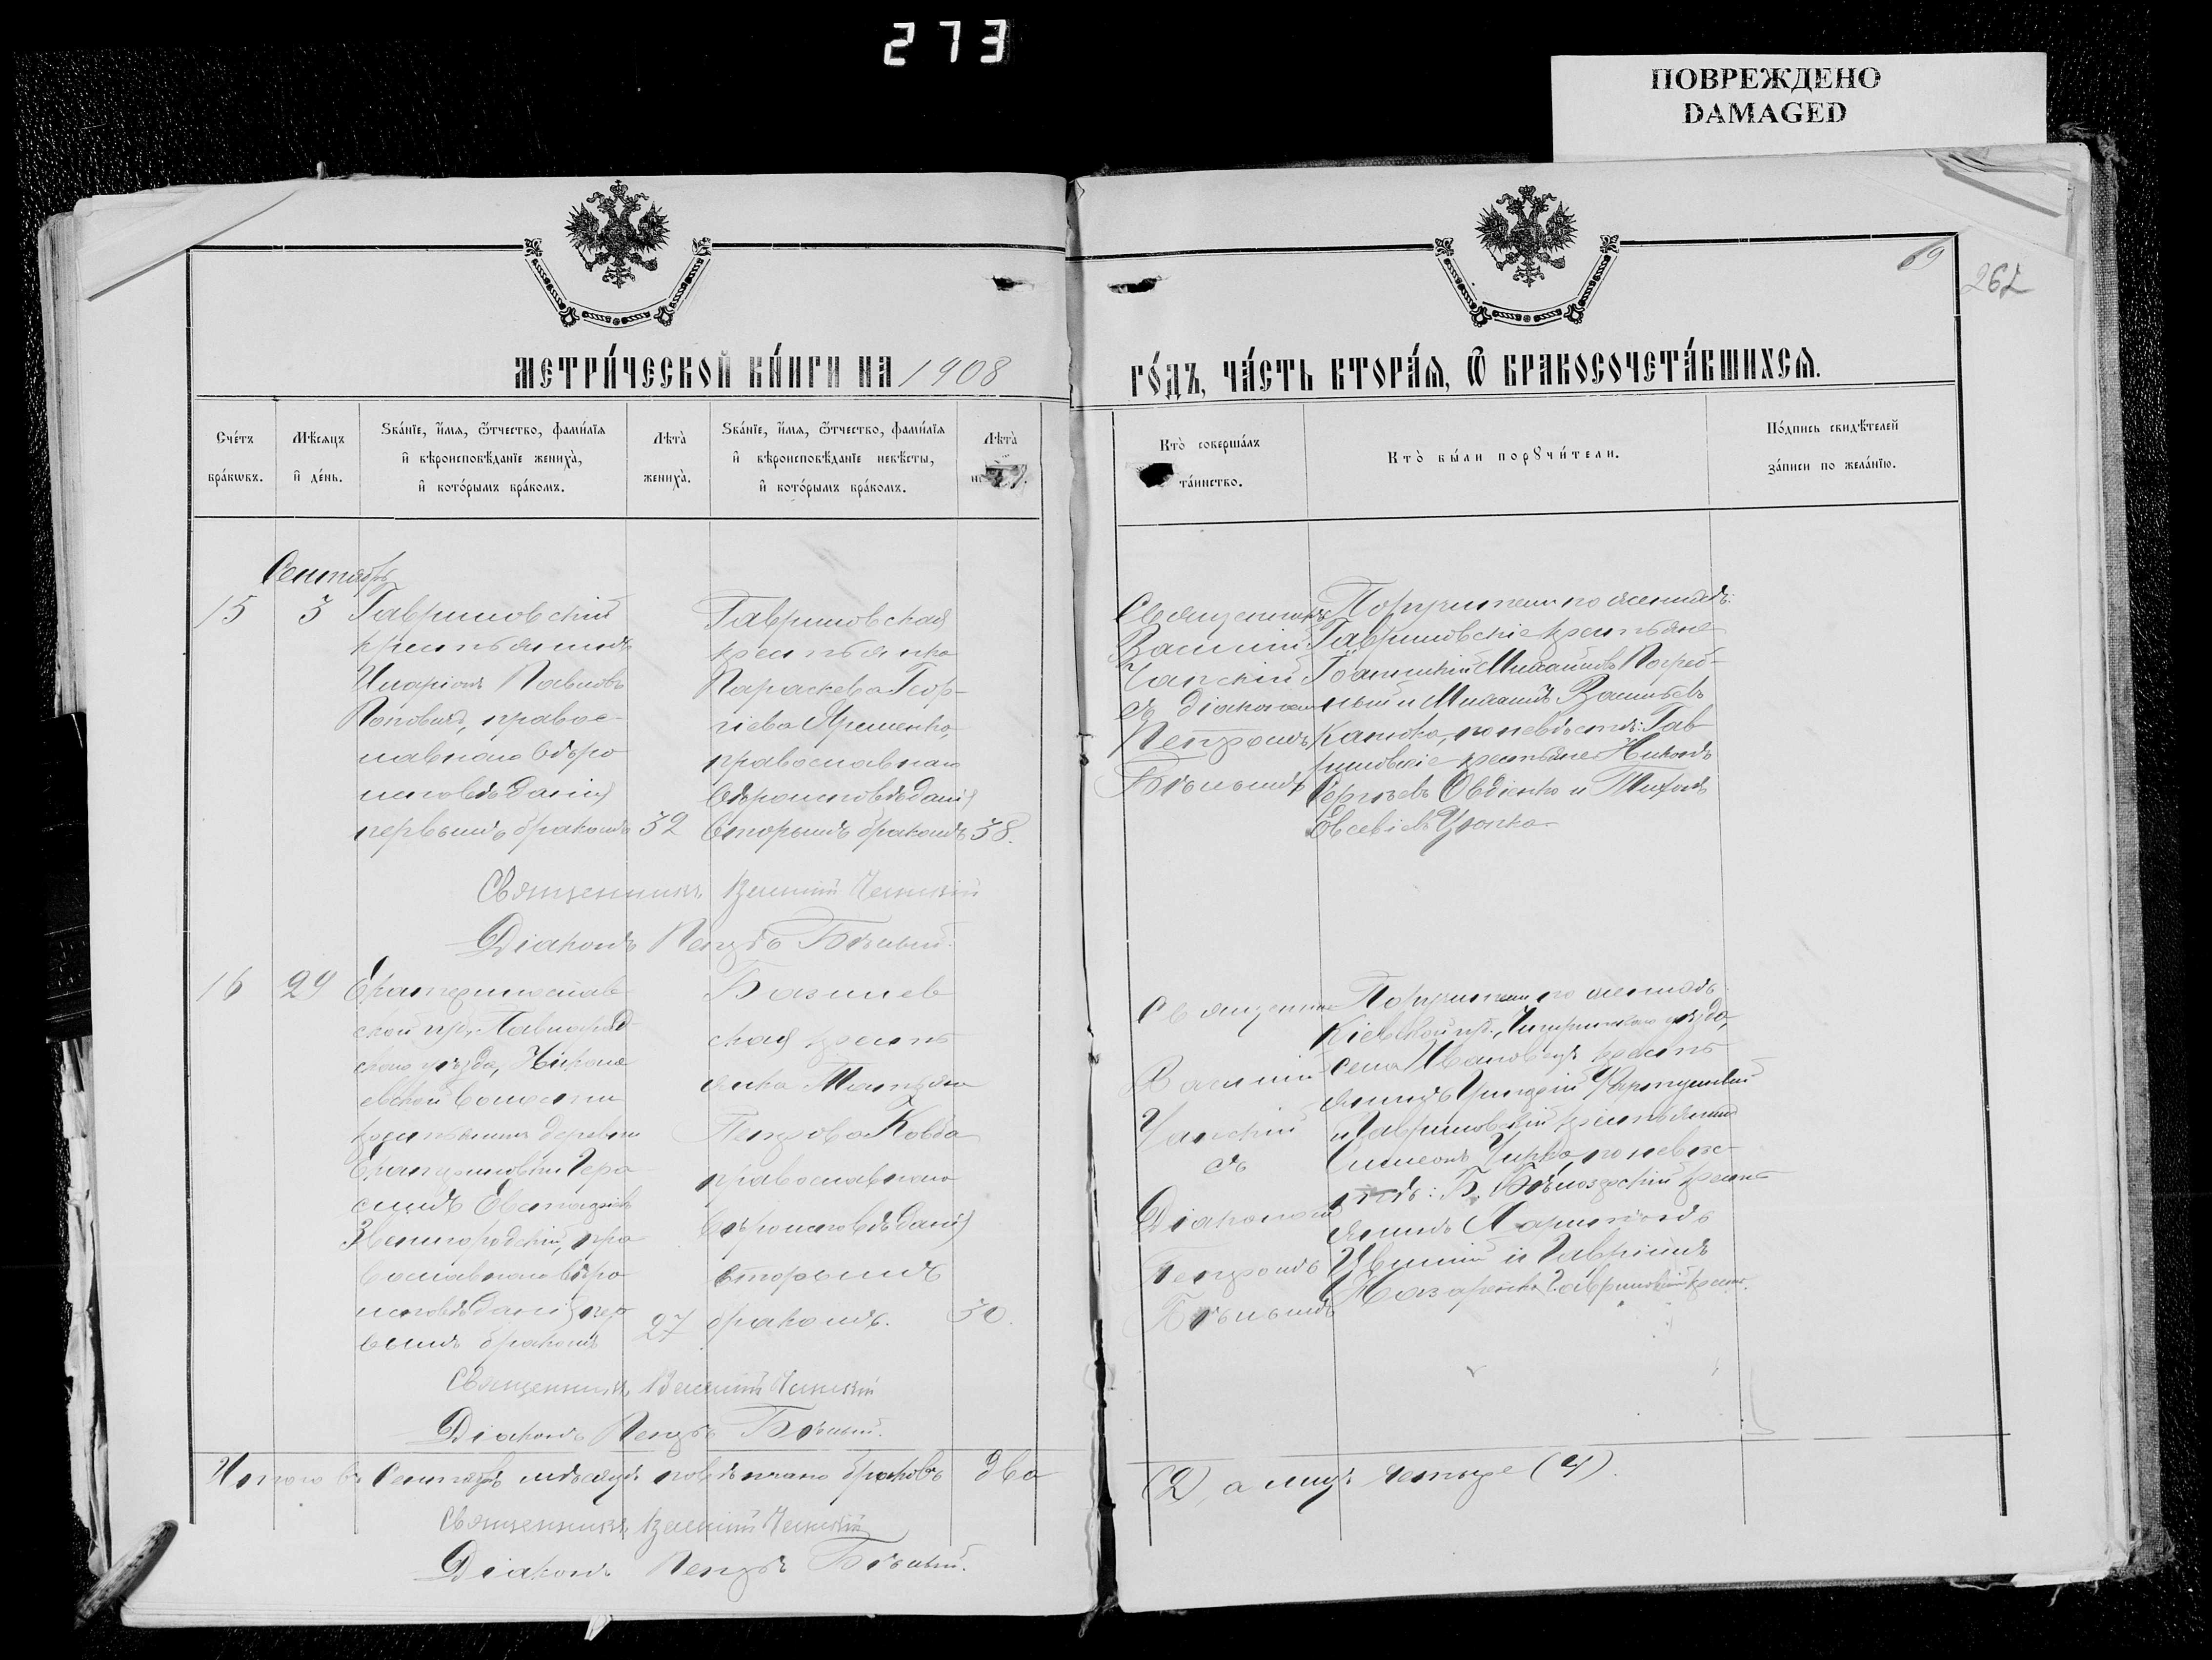 273
ПОВРЕЖДЕНО
DAMAGED
69
262
МЕТРИ́ЧЕСКОЙ КНИ́ГИ НА 1908
ГО́ДЪ, ЧА́СТЬ ВТОРА́Ѧ, Ѽ БРАКОСОЧЕТА́ВШИХСѦ.
Сче́тъ
бра́кѡвъ.
Мѣ́сѧцъ
и҆ де́нь.
Ѕва́нїе, и҆́мѧ, ѻ҆́тчество, фами́лїѧ
и҆ вѣроисповѣ́данїе жениха̀,
и҆ кото́рымъ бра́комъ.
Лѣта̀
жениха̀.
Ѕва́нїе, и҆́мѧ, ѻ҆́тчество, фами́лїѧ
и҆ вѣроисповѣ́данїе невѣ́сты,
и҆ кото́рымъ бра́комъ.
Лѣта̀
Кто̀ соверша́лъ
та́инство.
Кто̀ бы́ли порꙋчи́тели.
По́дпись свидѣ́телей
за́писи по жела́нїю.
Сентябрь
15
3
Гавриловскій
крестьянинъ
Иларіонъ Павловъ
Поповичъ, правос-
лавнаго вѣро
исповѣданія
первымъ бракомъ
32
Гавриловская
крестьянка
Параскева Геор-
гіева Яременко,
православнаго
вѣроисповѣданія
вторымъ бракомъ
38.
Священникъ
Василій
Чапскій
съ діакономъ
Петромъ
Бѣлымъ
Поручители по женихѣ:
Гавриловскіе крестьяне
Іоанникій Михаиловъ Погреб-
ный и Михаилъ Васильевъ
Канюка, по невѣстѣ: Гав
риловскіе крестьяне Никонъ
Сергѣевъ Овдіенко и Тихонъ
Евсевіевъ Цюпка
Священникъ Василій Чапскій
Діаконъ Петръ Бѣлый.
16
29
Екатеринослав
ской губ., Павлоград
скаго уѣзда, Николае
вской волости
крестьянинъ деревни
Екатериновки Гера
симъ Евстафіевъ
Звенигородскій, пра
вославнаго вѣро
исповѣданія пер
вымъ бракомъ
27
Базилев
ская кресть
янка Татьяна
Петрова Ковба
православнаго
вѣроисповѣданія
вторымъ
бракомъ.
30.
Священник
Василій
Чапскій
съ
Діакономъ
Петромъ
Бѣлымъ
Поручители по женихѣ:
Кіевской губ., Чигиринскаго уѣзда,
села Ивановецъ кресть
янинъ
и Гавриловскій крестьянинъ
Симеонъ Чирка, по невѣс-
тѣ: Б. Бѣлозерскій кресть
янинъ Харитонъ
и Гавріилъ
Назаренко Гавриловскій крест.
Священникъ Василій Чапскій
Діаконъ Петръ Бѣлый.
Итого въ Сентябрѣ мѣсяцѣ повѣнчано браковъ два
(2), а лицъ четыре (4).
Священникъ Василій Чапскій
Діаконъ Петръ Бѣлый.